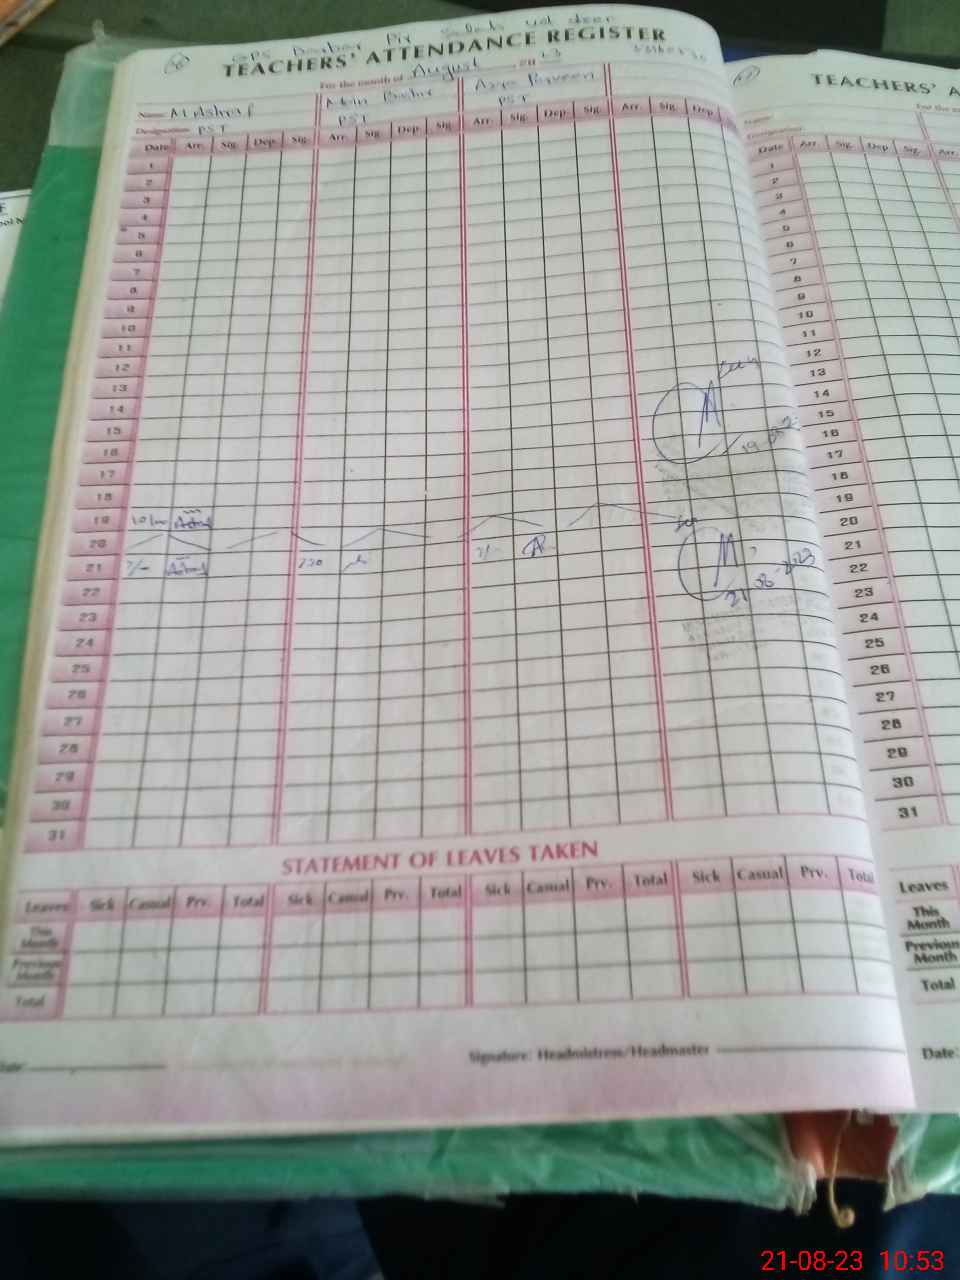 TEACHERS' ATTENDANCE REGISTER
For the month of August
Name: M Ashraf
Designation PST PST PST
Date Arr. Sig. Dep. Sig. Arr. Sig. Dep. Sig. Arr. Sig. Dep. Sig. Arr. Sig. Dep.
1
2
3
4
5
6
7
8
9
10
11
12
13
14
15
16
17
18
19
20
21 730
21-08-2023
22
23
24
25
26
27
28
29
30
31
STATEMENT OF LEAVES TAKEN
Leaves Sick Casual Prv. Total Sick Casual Prv. Total Sick Casual Prv. Total Sick Casual Prv. Total
This Month
Previous Month
Total
Date:
Signature: Headmistress/Headmaster
TEACHERS' A
Date Arr. Sig. Dep. Sig. Arr.
1
2
3
4
5
6
7
8
9
10
11
12
13
14
15
16
17
18
19
20
21
22
23
24
25
26
27
28
29
30
31
Leaves
This Month
Previous Month
Total
Date:
21-08-23 10:53